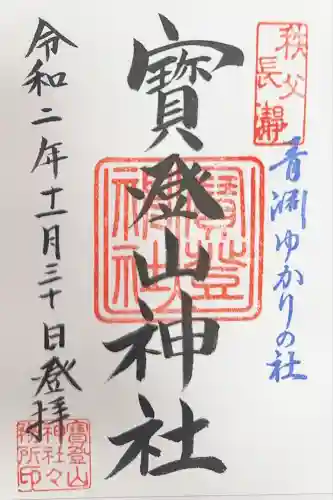 秩父
長瀞
青淵ゆかりの社
寳登山神社
寳登
山
神社
令和二年十一月三十日登拝
寳登山
神社々
務所印